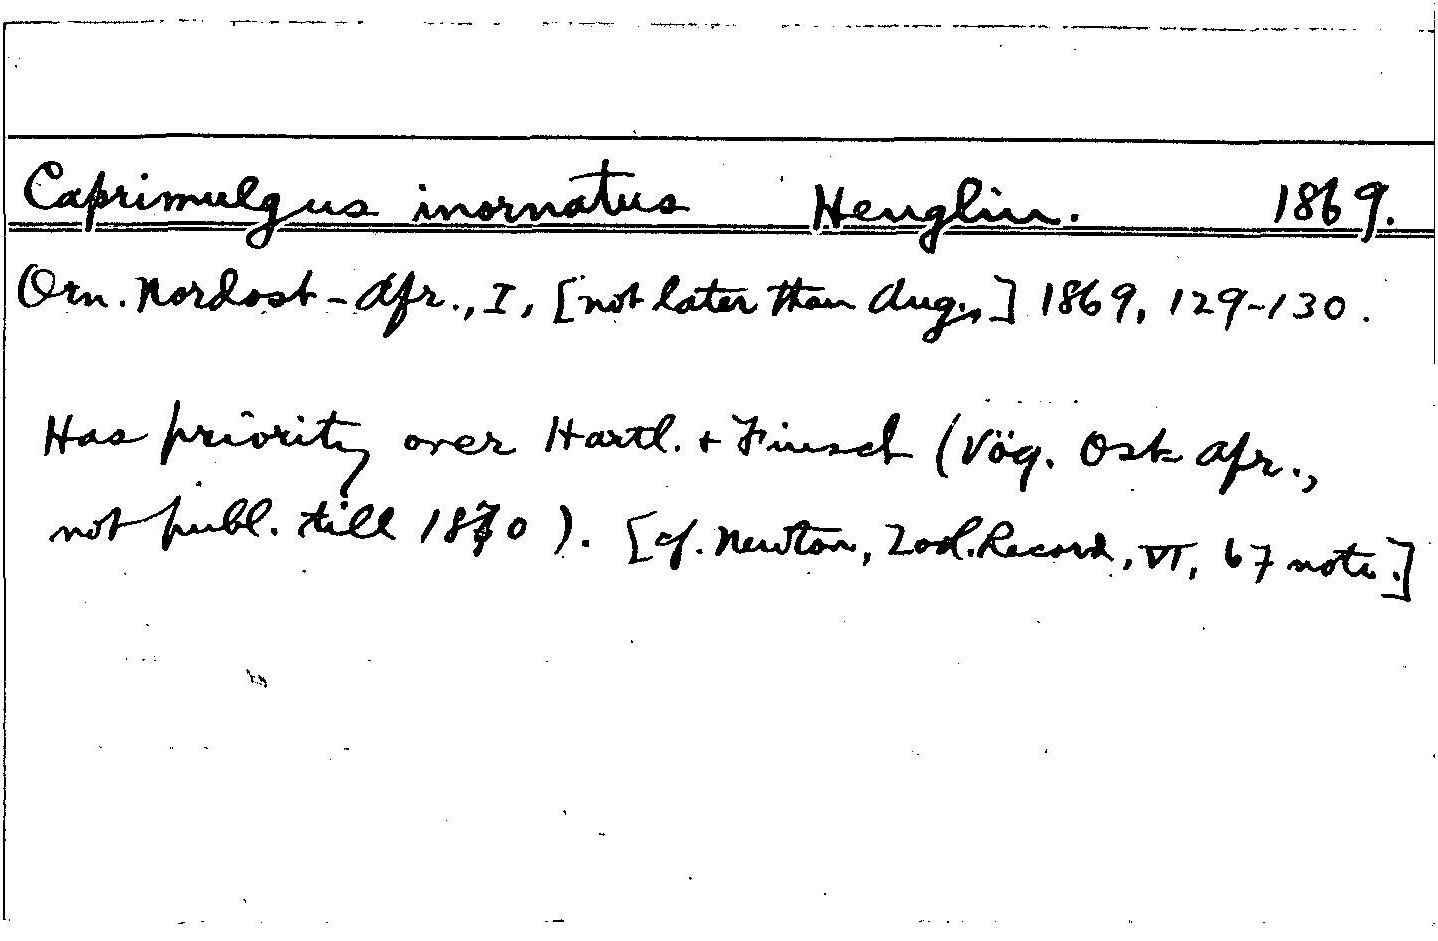 Caprimulgus inornatus Heuglin. 1869.
Orn. Nordost-Afr., I, [not later than Aug.,] 1869, 129-130.
Has priority over Hartl. + Finsch (Vög. Ost Afr.,
not publ. till 1870). [cf. Newton, Zool. Record, VI, 67 note.]